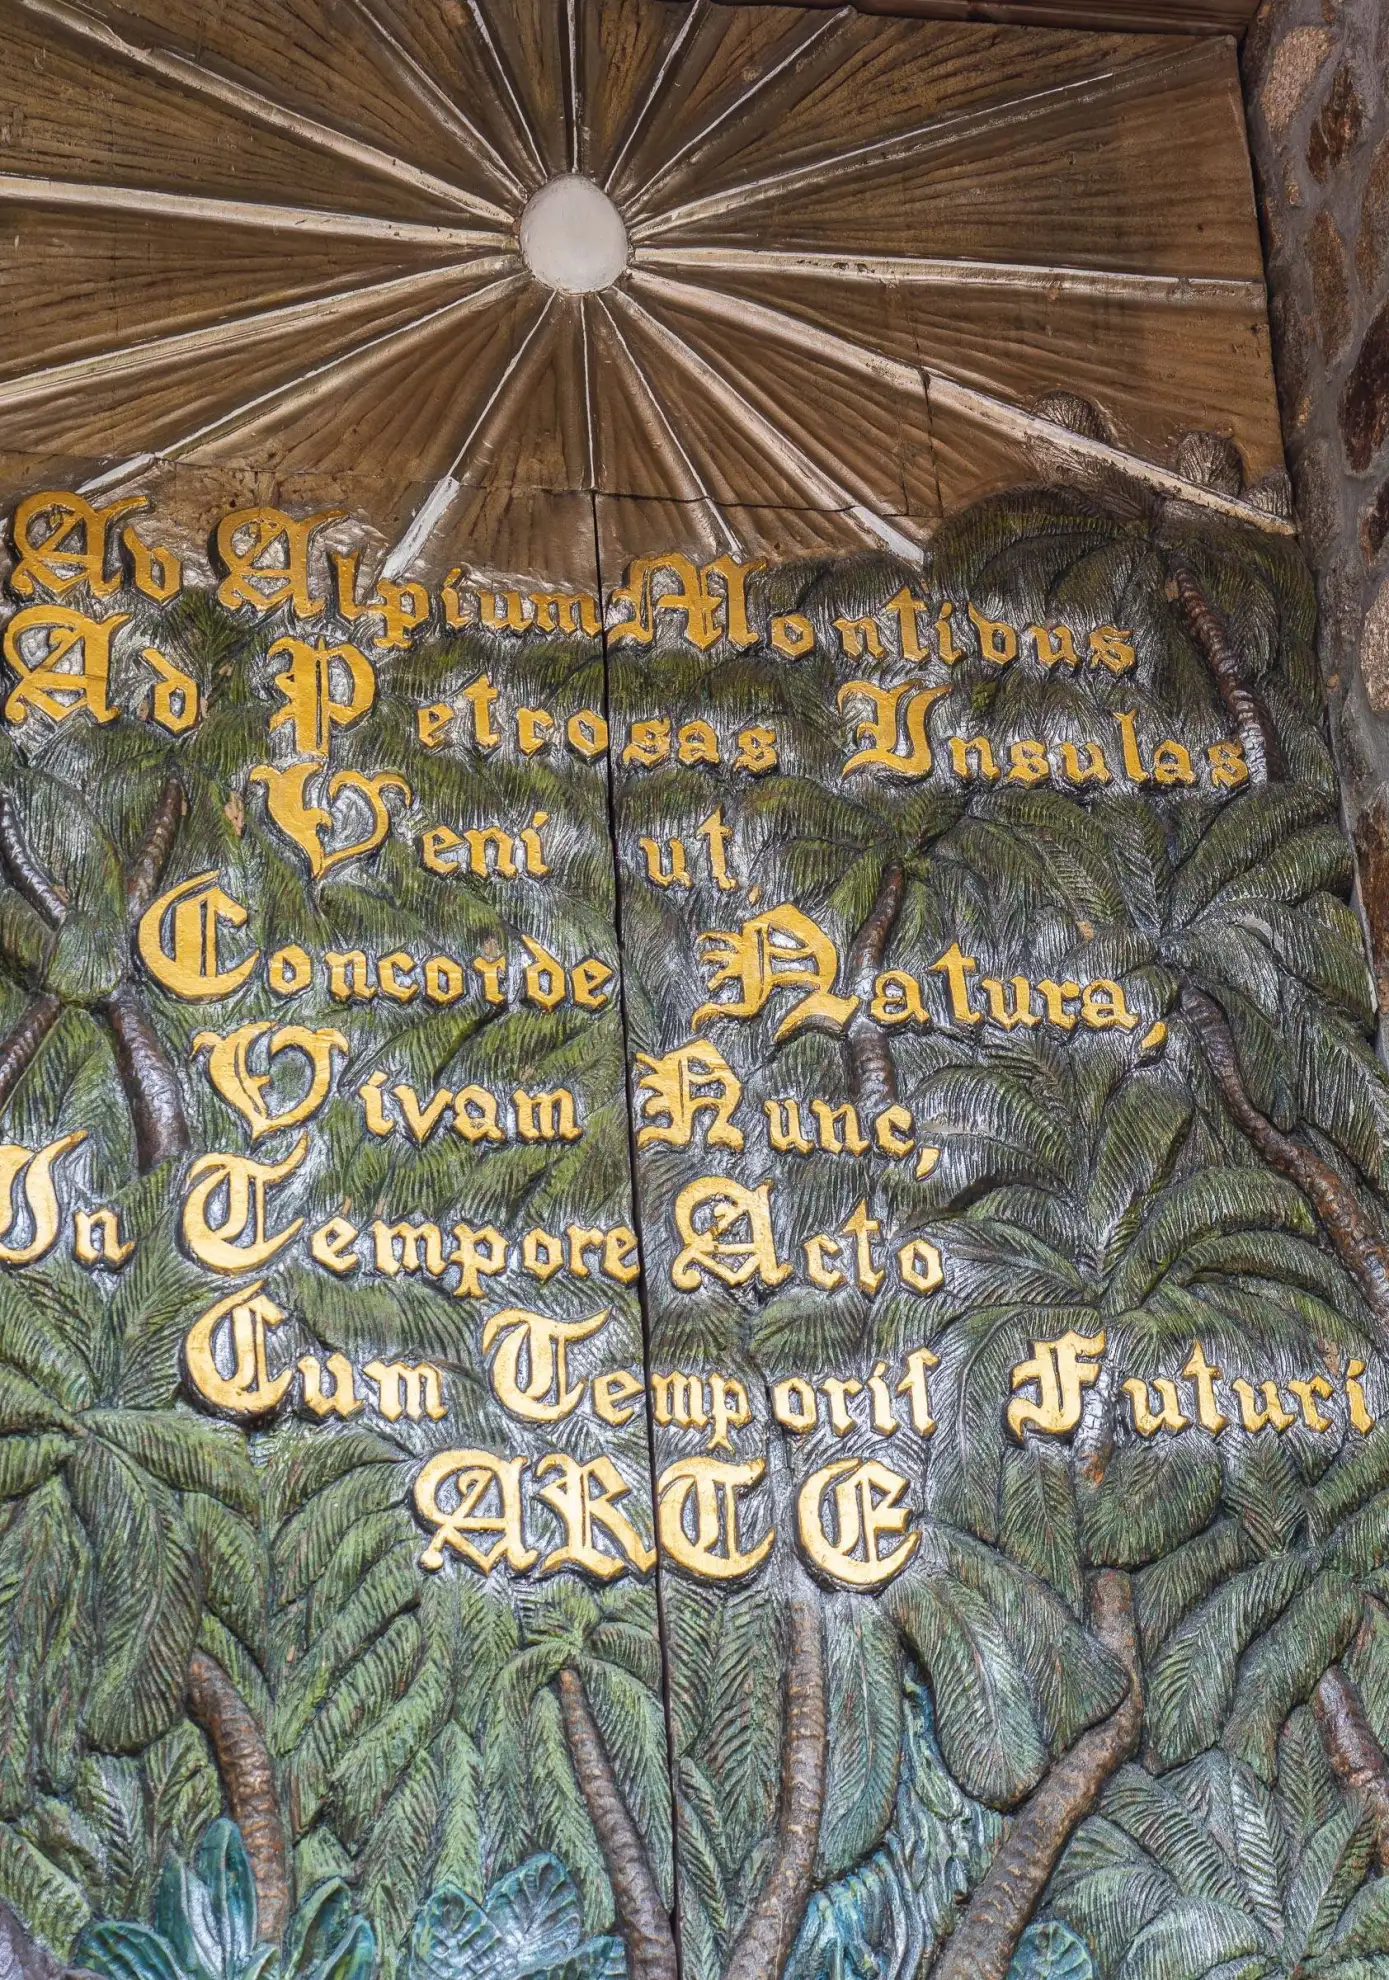 Av Alpium Montivus
Ad Petrosas Insulas
Veni ut,
Concorde Natura,
Vivam Nunc,
In Tempore Acto
Cum Temporis Futuri
ARTE